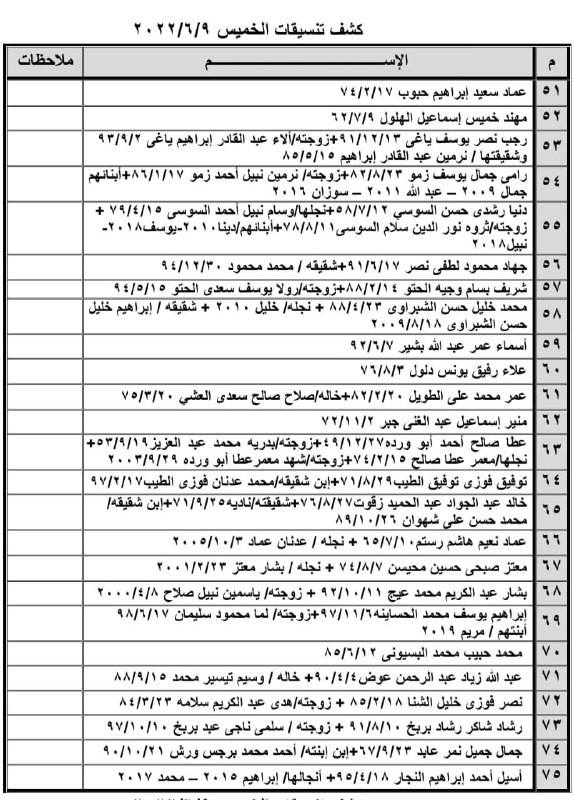 كشف تنسيقات الخميس ٢٠٢٢/٦/٩
م الإســـــــم ملاحظات
٥١ عماد سعيد إبراهيم حبوب ٧٤/٢/١٧
٥٢ مهند خميس إسماعيل الهلول ٦٢/٧/٩
٥٣ رجب نصر يوسف ياغى ٩١/١٢/١٣+زوجته/ألاء عبد القادر إبراهيم ياغى ٩٣/٩/٢
وشقيقتها / نرمين عبد القادر إبراهيم ٨٥/٥/١٥
٥٤ رامى جمال يوسف زمو ٨٢/٨/٢٣+زوجته/ نرمين نبيل أحمد زمو ٨٦/١/١٧+أبنائهم
جمال ٢٠٠٩ – عبد الله ٢٠١١ – سوزان ٢٠١٦
٥٥ دنيا رشدى حسن السوسي ٥٨/٧/١٢+نجلها/وسام نبيل أحمد السوسى ٧٩/٤/١٥ +
زوجته/ثروه نور الدين سلام السوسى٧٨/٨/١١+أبنائهم/دينا٢٠١٠-يوسف٢٠١٨-
نبيل٢٠١٨
٥٦ جهاد محمود لطفى نصر ٩١/٦/١٧+شقيقه / محمد محمود ٩٤/١٢/٣٠
٥٧ شريف بسام وجيه الحتو ٨٨/٢/١٤+زوجته/رولا يوسف سعدى الحتو ٩٤/٥/١٥
٥٨ محمد خليل حسن الشبراوى ٨٨/٤/٢٣ + نجله/ خليل ٢٠١٠ + شقيقه / إبراهيم خليل
حسن الشبراوى ٢٠٠٩/٨/١٨
٥٩ أسماء عمر عبد الله بشير ٩٢/٦/٧
٦٠ علاء رفيق يونس دلول ٧٦/٨/٣
٦١ عمر محمد على الطويل ٨٢/٢/٢٠+خاله/صلاح صالح سعدى العشي ٧٥/٣/٢٠
٦٢ منير إسماعيل عبد الغنى جبر ٧٢/١١/٢
٦٣ عطا صالح أحمد أبو ورده٤٩/١٢/٢٧+زوجته/بدريه محمد عبد العزيز٥٣/٩/١٩+
نجلها/معمر عطا صالح ٧٤/٢/١٥+زوجته/شهد معمرعطا أبو ورده ٢٠٠٣/٩/٢٩
٦٤ توفيق فوزى توفيق الطيب٧١/٨/٢٩+إبن شقيقه/محمد عدنان فوزى الطيب٩٧/٢/١٧
٦٥ خالد عبد الجواد عبد الحميد زقوت٧٦/٨/٢٧+شقيقته/ناديه٧١/٩/٢٥+إبن شقيقه/
محمد حسن على شهوان ٨٩/١٠/٢٦
٦٦ عماد نعيم هاشم رستم٦٥/٧/١٠ + نجله / عدنان عماد ٢٠٠٥/١٠/٣
٦٧ معتز صبحى حسين محيسن ٧٤/٨/٧ + نجله / بشار معتز ٢٠٠١/٢/٢٣
٦٨ بشار عبد الكريم محمد عيج ٩٢/١٠/١١ + زوجته/ ياسمين نبيل صلاح ٢٠٠٠/٤/٨
٦٩ إبراهيم يوسف محمد الحساينه٩٧/١١/٦+زوجته/ لما محمود سليمان ٩٨/٦/١٧
أبنتهم / مريم ٢٠١٩
٧٠ محمد حبيب محمد البسيونى ٨٥/٦/١٢
٧١ عبد الله زياد عبد الرحمن عوض٩٠/٤/٤+ خاله / وسيم تيسير محمد ٨٨/٩/١٥
٧٢ نصر فوزى خليل الشنا ٨٥/٢/١٨ + زوجته/هدى عبد الكريم سلامه ٨٤/٣/٢٣
٧٣ رشاد شاكر رشاد بريخ ٩١/٨/١٠ + زوجته / سلمى ناجى عبد بريخ ٩٧/١٠/١٠
٧٤ جمال جميل نمر عابد ٦٧/٩/٢٣+إبن إبنته/ أحمد محمد برجس ورش ٩٠/١٠/٢١
٧٥ أسيل أحمد إبراهيم النجار ٩٥/٤/١٨+ أنجالها/ إبراهيم ٢٠١٥ – محمد ٢٠١٧